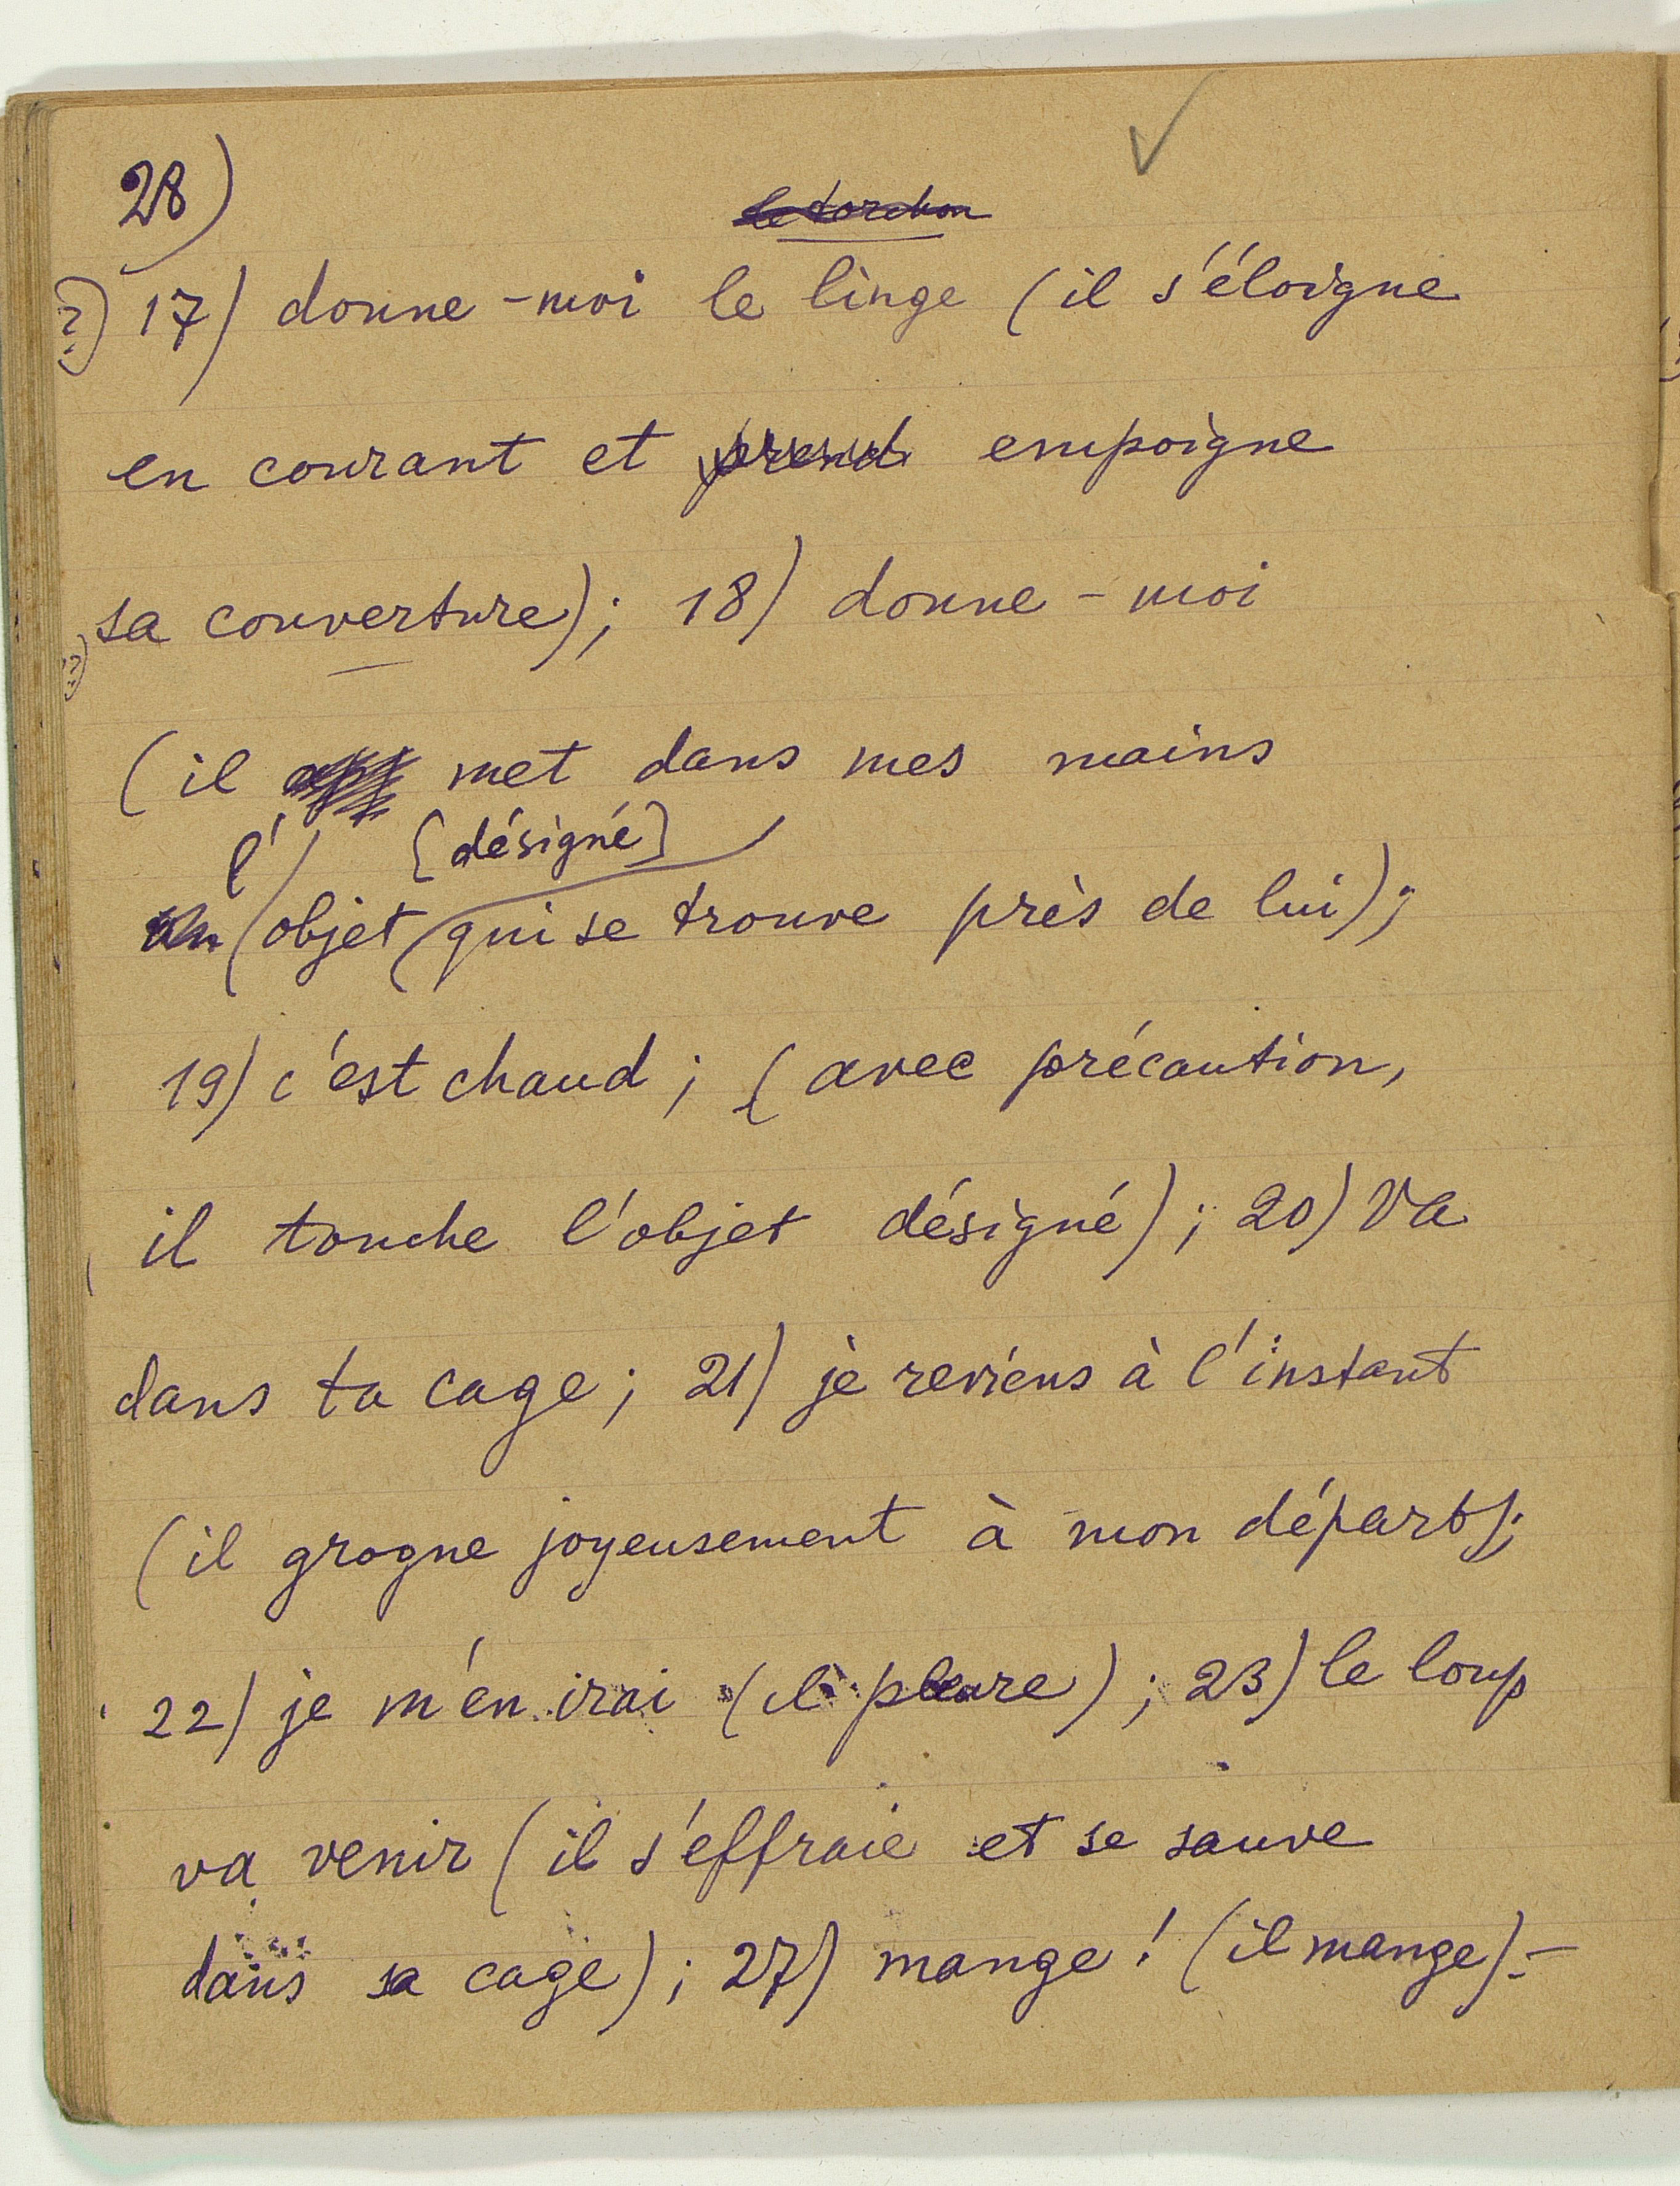 28)
le torchon
?) 17) donne-moi le linge (il s'éloigne
en courant et prend empoigne
sa couverture); 18) donne-moi
(il met dans mes mains
l' [désigné]
un objet qui se trouve près de lui);
19) c'est chaud; (avec précaution,
il touche l'objet désigné); 20) Va
dans ta cage; 21) je reviens à l'instant
(il grogne joyeusement à mon départ);
22) je m'en irai (il pleure); 23) le loup
va venir (il s'effraie et se sauve
dans sa cage); 27) mange! (il mange).-